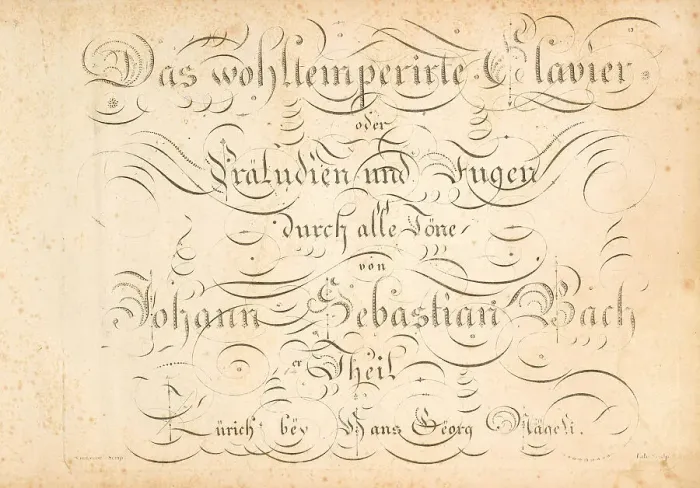 Das wohltemperirte Clavier
oder
Präludien und Fugen
durch alle Töne
von
Johann Sebastian Bach
er Theil
Zürich bëy Hans Gëorg Nägeli.